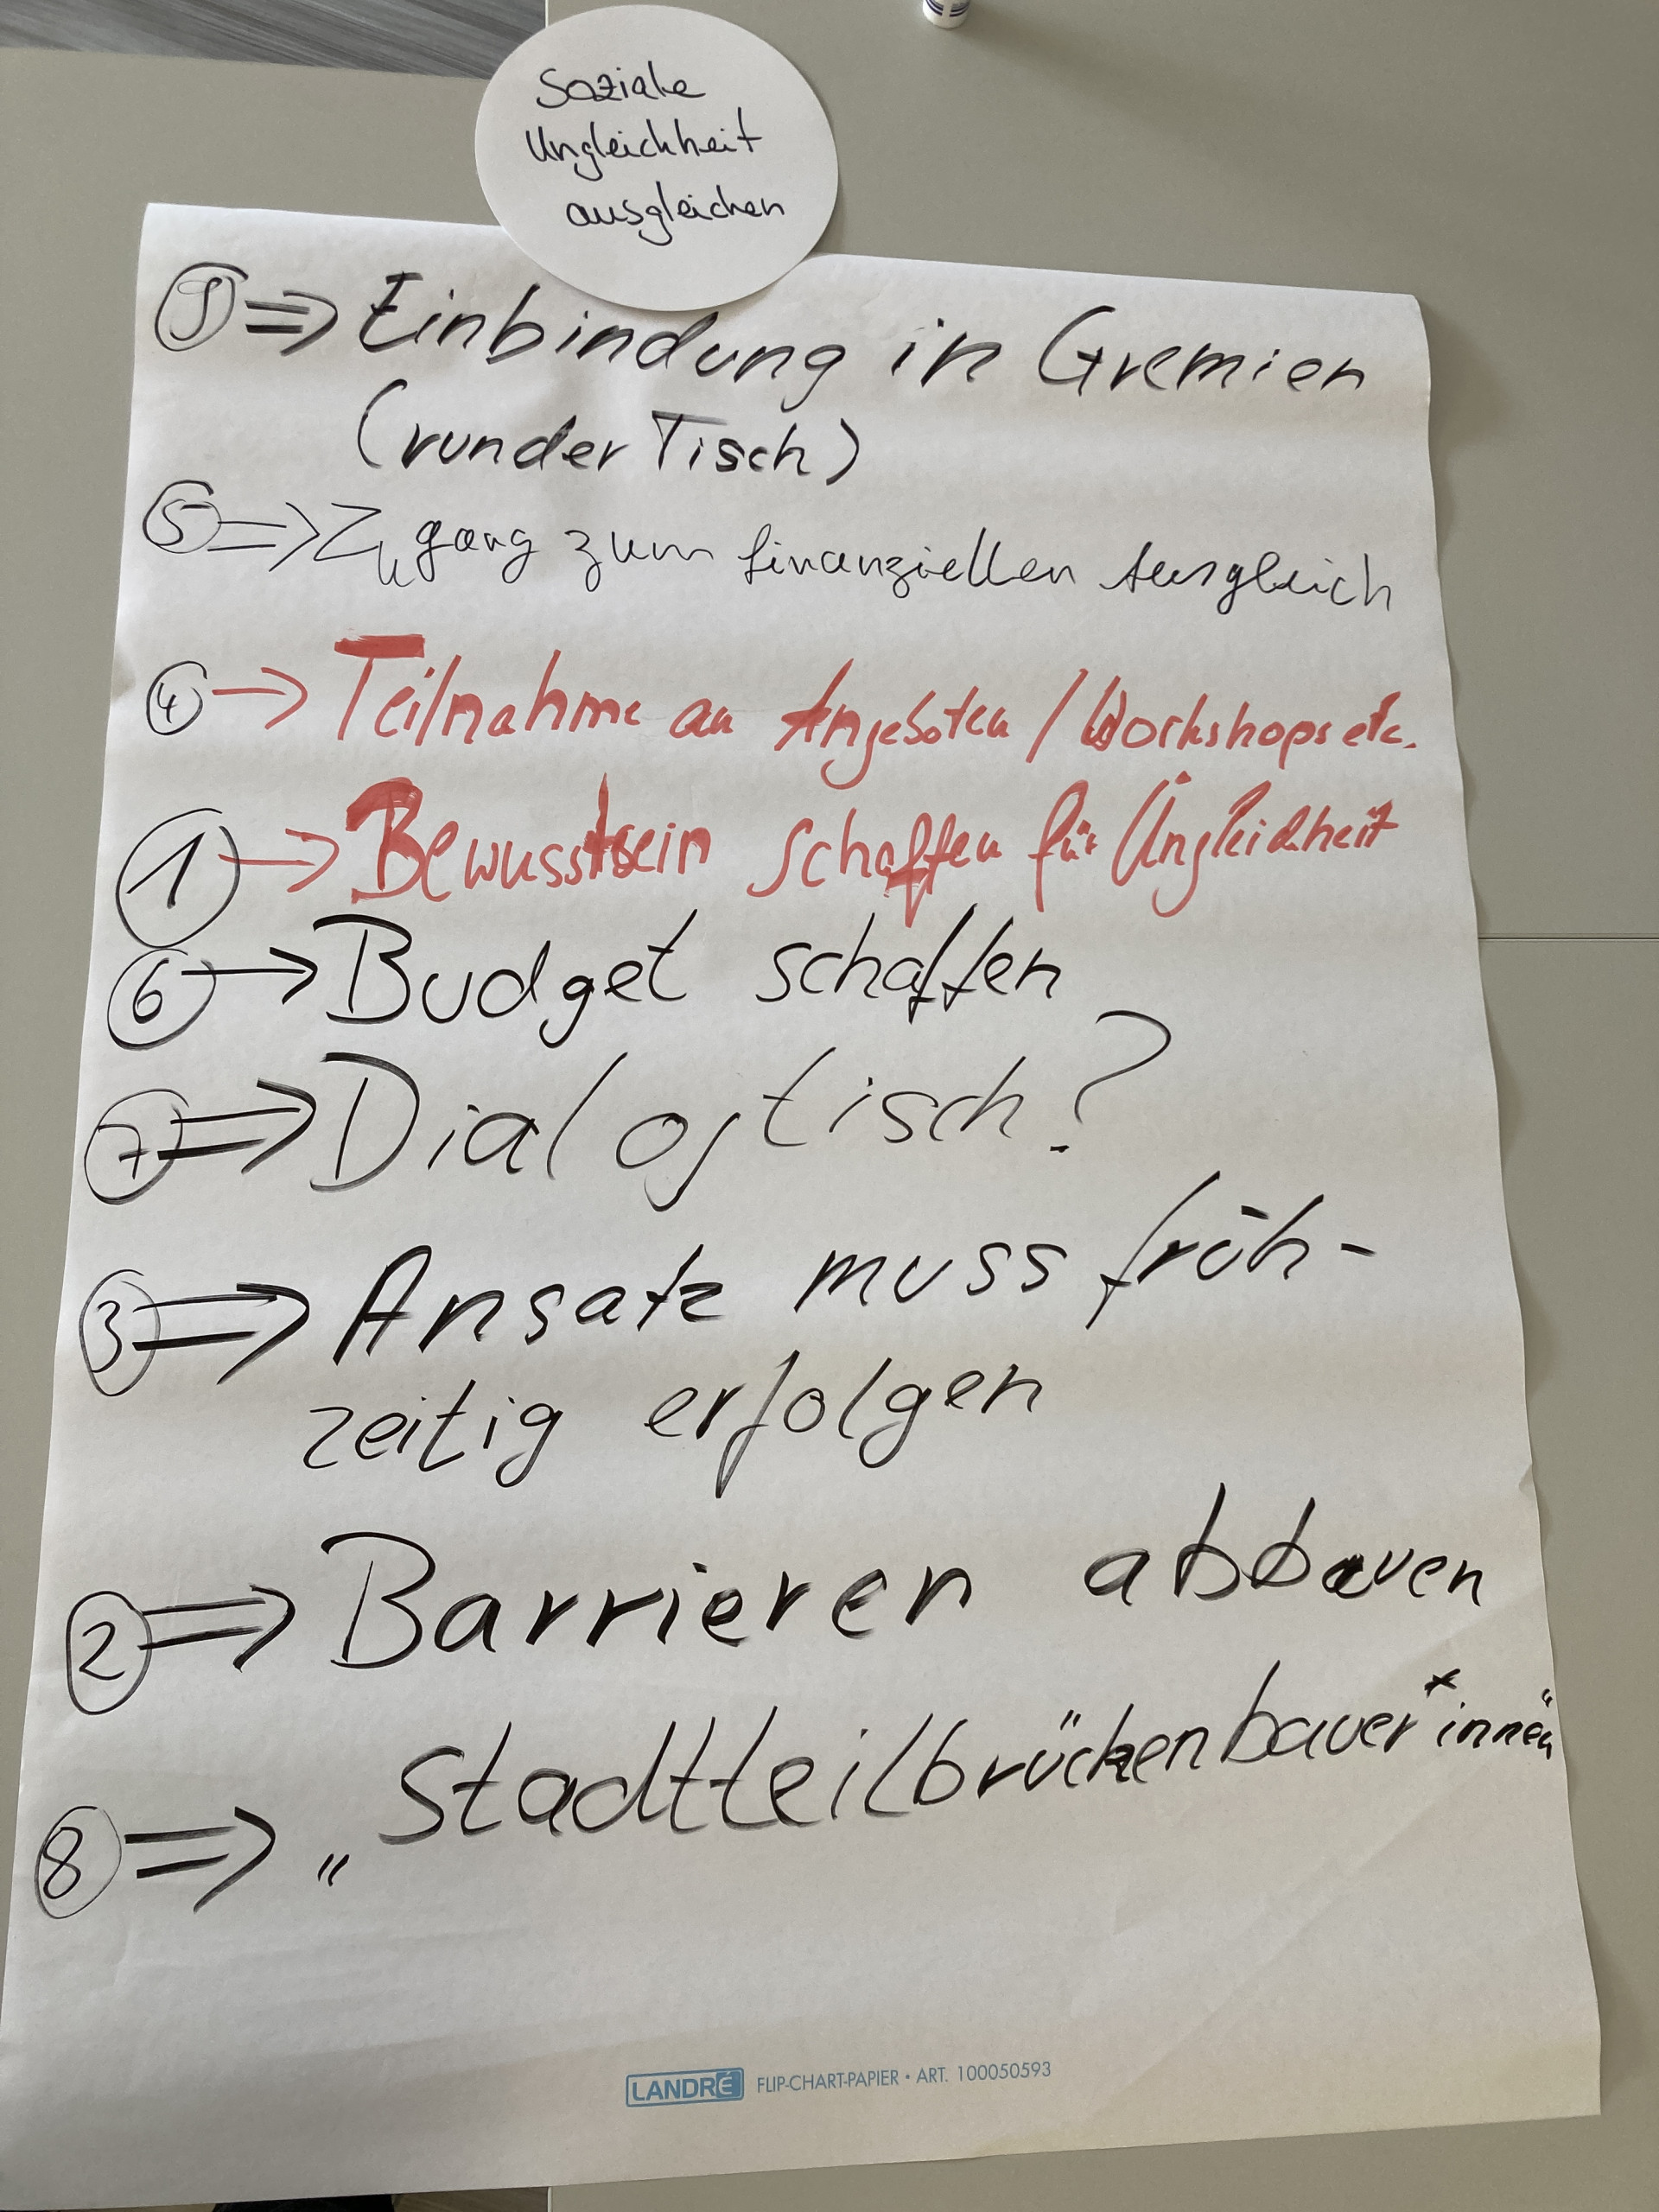 Soziale
Ungleichheit
ausgleichen
9 ⇒ Einbindung in Gremien
(runder Tisch)
5 ⇒ Zugang zum finanziellen Ausgleich
4 → Teilnahme an Angeboten / Workshops etc.
1 → Bewusstsein schaffen für Ungleichheit
6 → Budget schaffen
7 ⇒ Dialogtisch?
3 ⇒ Ansatz muss früh-
zeitig erfolgen
2 ⇒ Barrieren abbauen
8 ⇒ „Stadtteilbrückenbauer*innen“
LANDRÉ FLIP-CHART-PAPIER • ART. 100050593